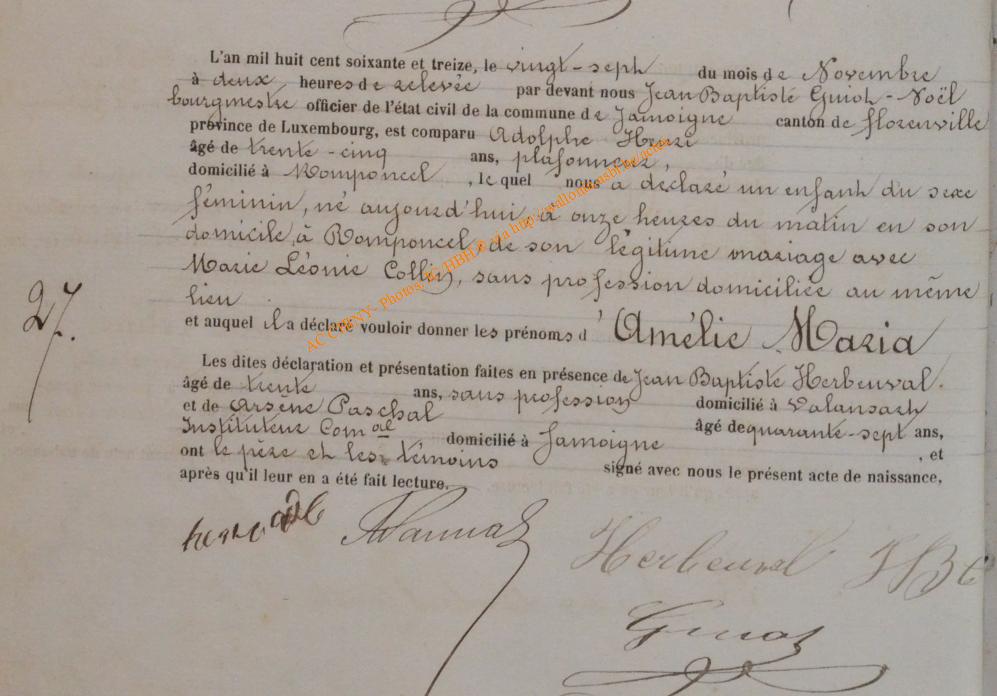 L'an mil huit cent soixante et treize, le vingt-sept du mois de Novembre
à deux heures de relevée par devant nous Jean Baptiste Guiot-Noël
bourgmestre officier de l'état civil de la commune de Jamoigne canton de florenville
province de Luxembourg, est comparu Adolphe Henri
âgé de trente-cinq ans, plafonneur,
domicilié à Romponcel, le quel nous a déclaré un enfant du sexe
féminin, né aujourd'hui à onze heures du matin en son
domicile, à Romponcel, de son légitime mariage avec
Marie Léonie Collin, sans profession domiciliée au même
lieu
27.
et auquel il a déclaré vouloir donner les prénoms d'Amélie Maria
Les dites déclaration et présentation faites en présence de Jean Baptiste Herbeuval.
âgé de trente ans, sans profession domicilié à Valansart
et de Arsène Paschal âgé de quarante-sept ans,
Instituteur Com.al domicilié à Jamoigne, et
ont le père et les témoins signé avec nous le présent acte de naissance,
après qu'il leur en a été fait lecture.
Herbeuval JB
Guiot